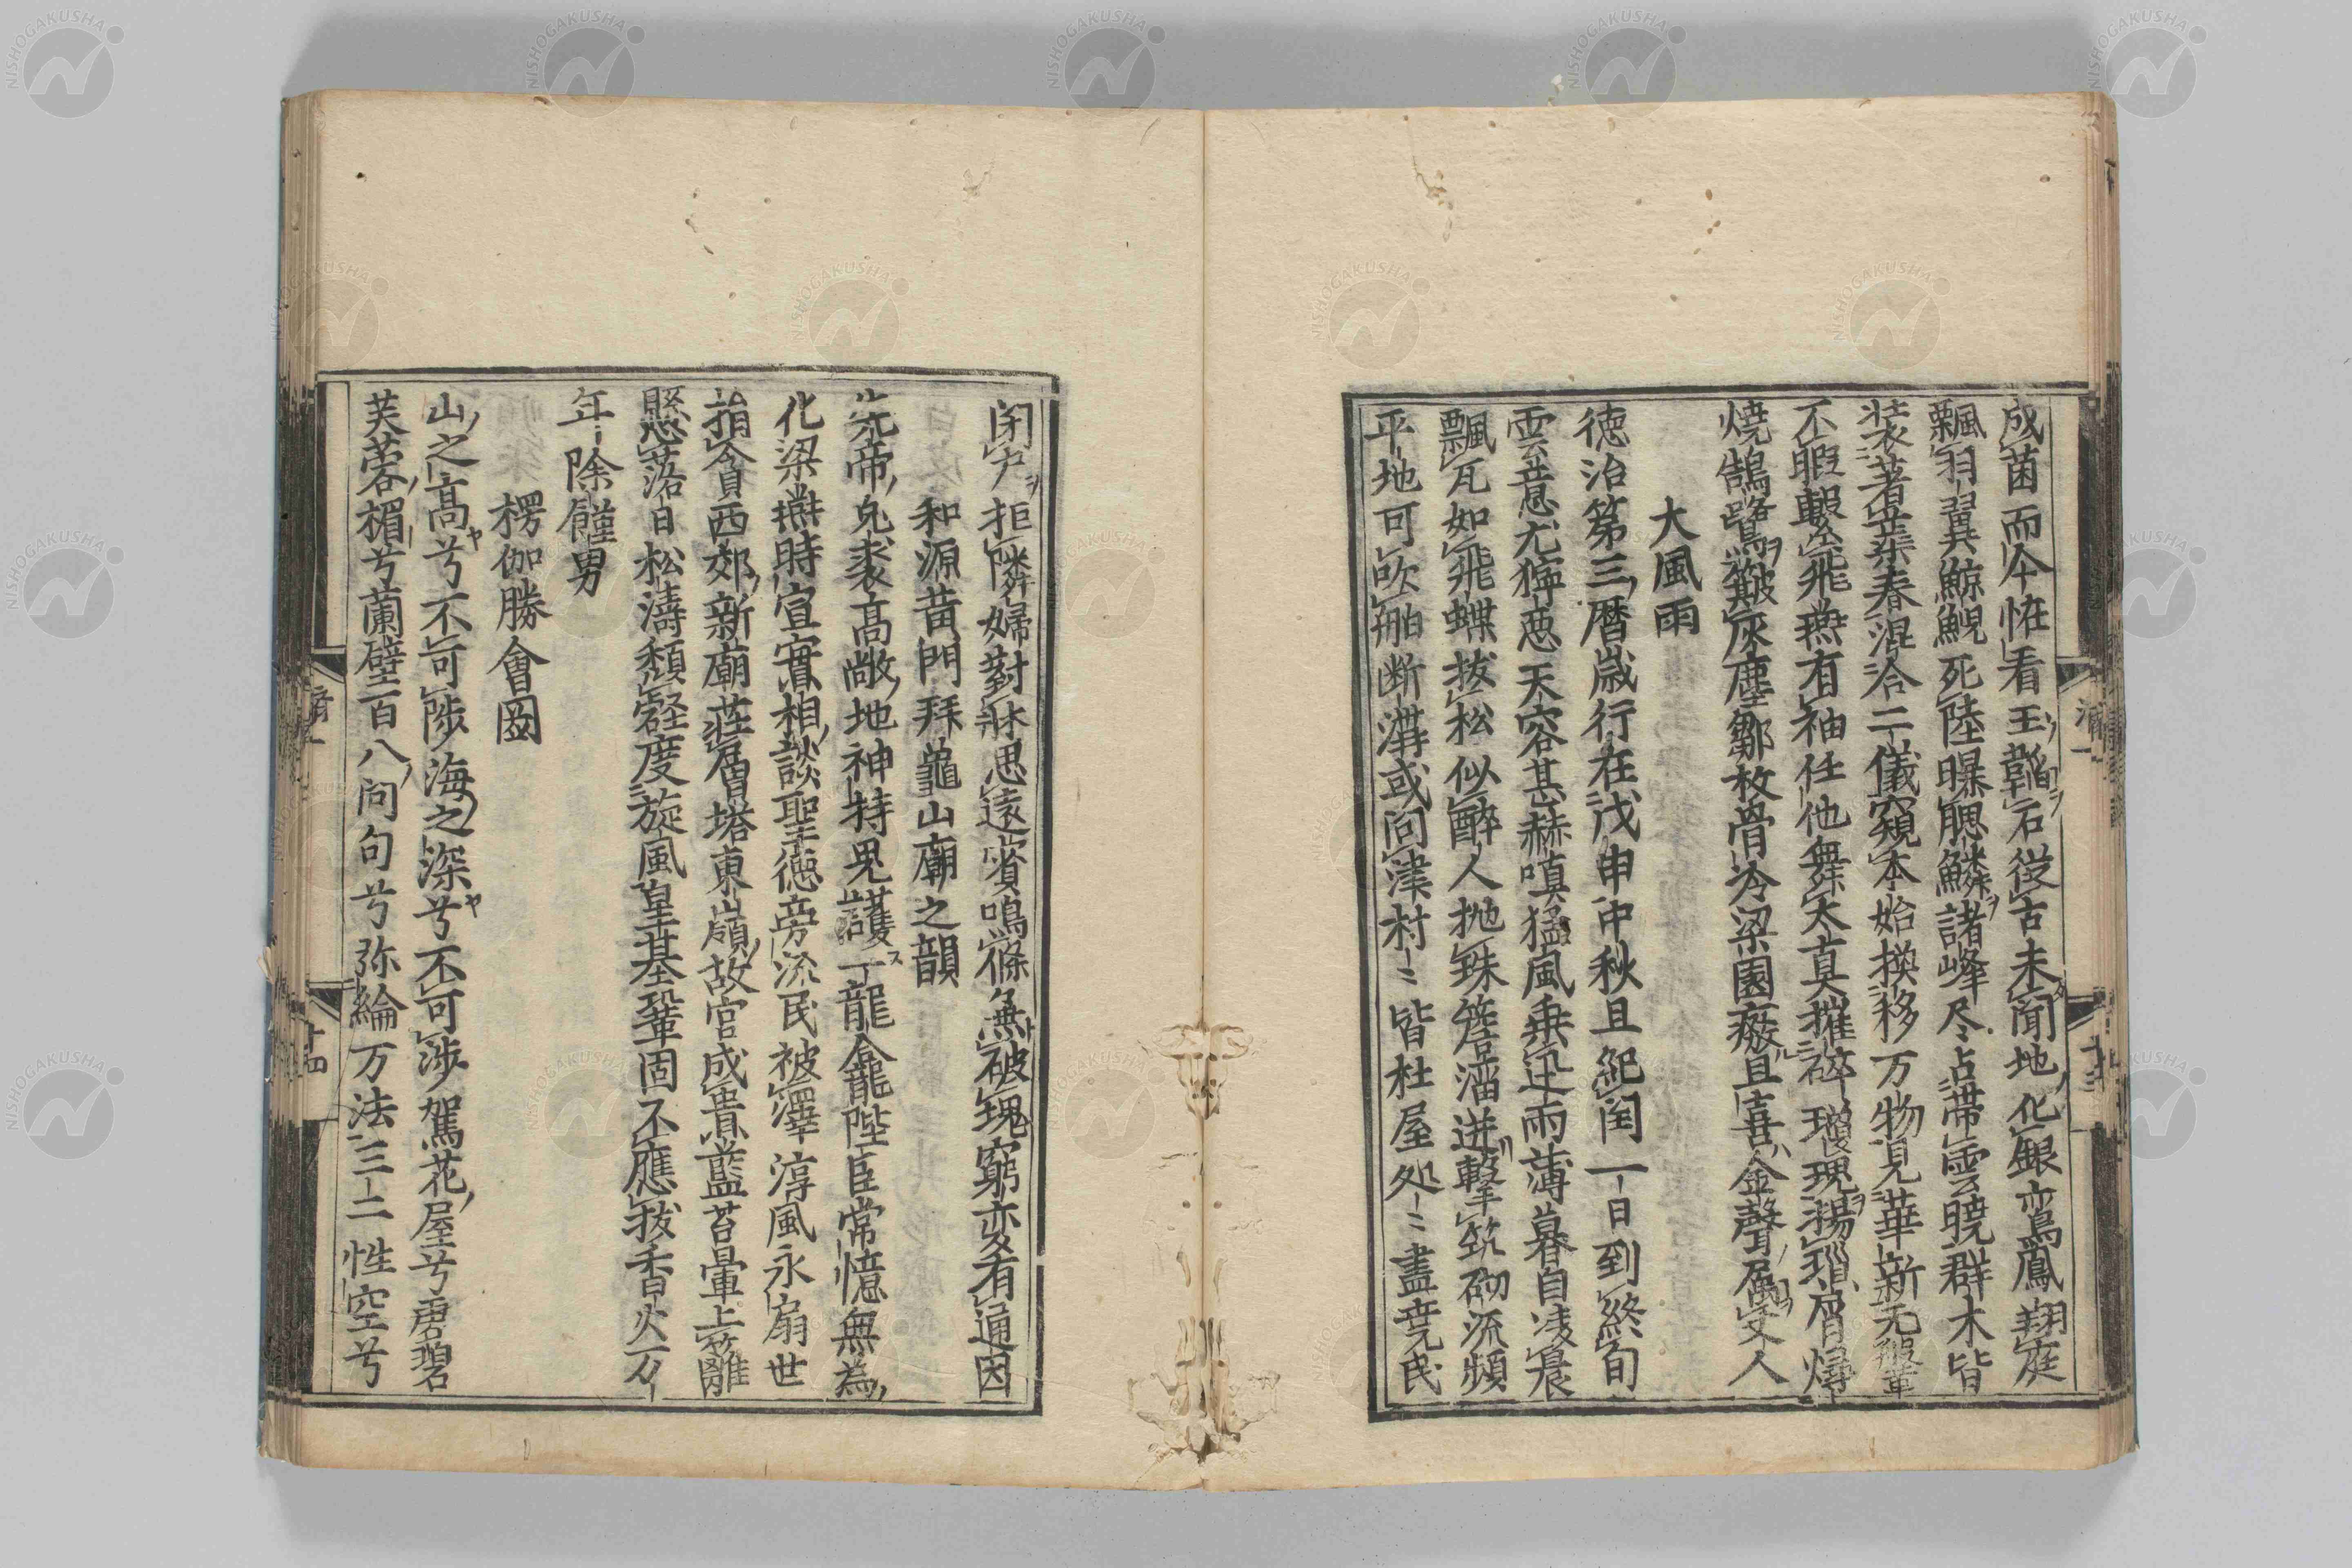 成茵而今恠看玉韜石從古未聞地化銀鸞鳳翔庭
飄羽翼鯨鯢死陸曝腮鱗諸峰尽占帶雲曉群木皆
装著葉春混合二儀窺本始換移万物見華新无
不暇轂飛燕有袖任他舞太真摧碎瓊瑰揚瑙屑燖
燒鵠鷺簸灰塵鄒枚骨冷梁園廢且喜金聲属文人
大風雨
德治第三暦歳行在戊申中秋且紀閏一日到終旬
雲意尤獰惡天容甚赫嗔猛風乗迅雨薄暮自凌晨
飄瓦如飛蝶拔松似醉人抛銖簷溜迸撃筑砌流頻
平地可吹舶断溝或問津村〻皆杜屋処〻盡喪民
濟一
十三
閉戸拒隣婦對牀思遠賓鳴條無破塊窮変有通因
和源黄門拜龜山廟之韻
先帝皃裘高敞地神持鬼護丁龍龕龍陛臣常憶無為
化梁燕時宣實相談聖德旁流民被澤淳風永扇世
指貪西郊新廟莊層塔東巓故宮成貴藍苔暈上籬
懸落日松濤頽磴度旋風皇基鞏固不應拔香火万
年除饉男
楞伽勝會圖
山之高兮不可陟海之深兮不可渉駕花屋兮唐碧
芙蓉楣兮蘭壁百八問句兮弥綸万法三二性空兮
濟一
十四